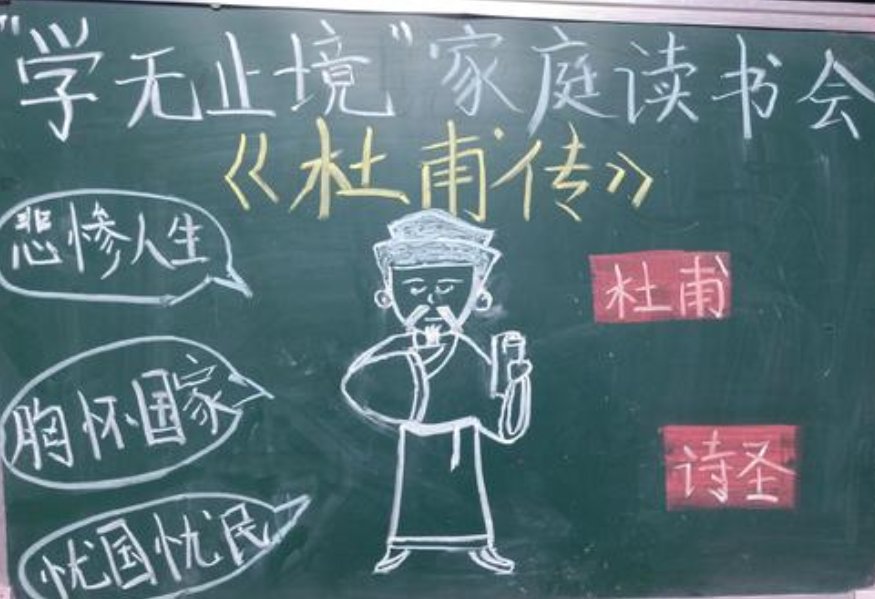 "学无止境"家庭读书会
《杜甫传》
悲惨人生
杜甫
胸怀国家
诗圣
忧国忧民